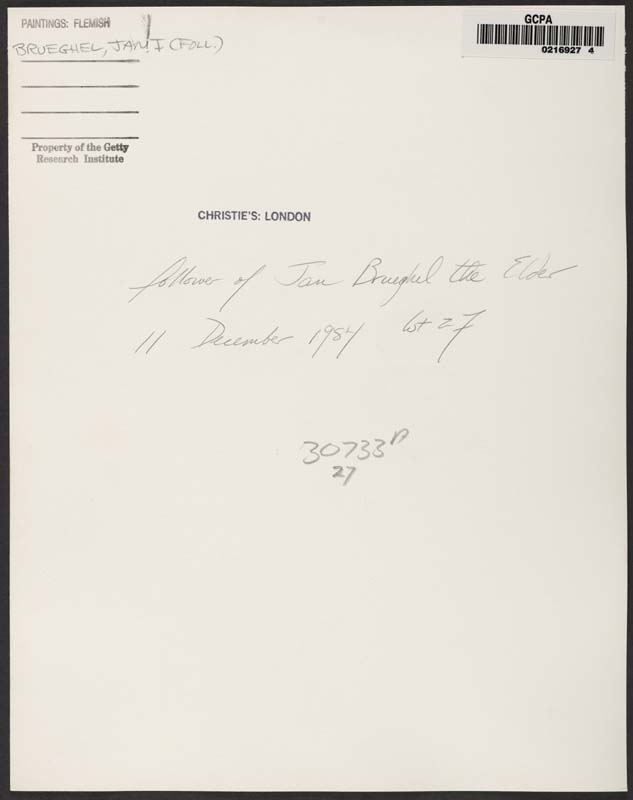 PAINTINGS: FLEMISH
BRUEGHEL, JAN I (FOLL.)
GCPA
0216927 4
Property of the Getty
Research Institute
CHRISTIE'S: LONDON
follower of Jan Brueghel the Elder
11 December 1984 lot 27
30733 n
27